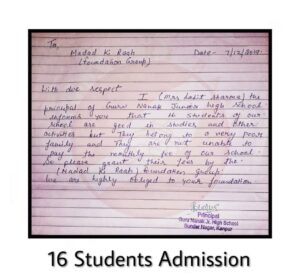 To,
Madad Ki Raah Date- 7/12/2019
(foundation Group)
With due respect
I (Mrs Lalit Sharma) the
principal of Guru Nanak Junior high School
informs you that 16 students of our
school are good in studies and other
activities but They belong to a very poor
family and They are not unable to
pay the monthly fee of our school.
So please grant their fees by the
(Madad Ki Raah) foundation group.
we are highly obliged to your foundation
Principal
Guru Nanak Jr. High School
Gumdar Nagar, Kanpur
16 Students Admission